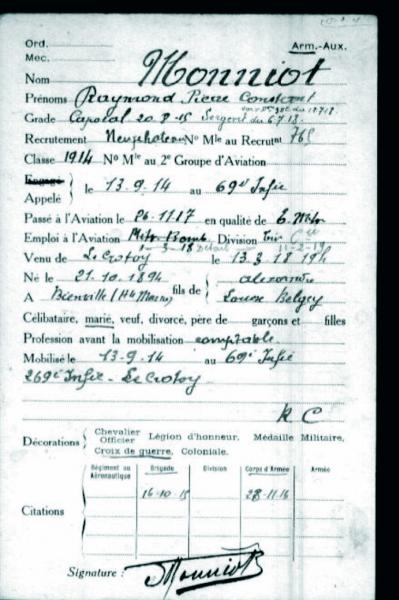 Ord. Arm.-Aux.
Mec.
Nom Monniot
Prénoms Raymond Pierre Constant
Grade Caporal 20.8.15 Sergent du 6.7.18.
Recrutement Neufchateau No Mle au Recrutnt 765
Classe 1914 No Mle au 2e Groupe d'Aviation
Engagé
Appelé le 13.9.14 au 69e Infie
Passé à l'Aviation le 26.11.17 en qualité de E. Mitr
Emploi à l'Aviation Mitr. Bomb. Division
Venu de Le Crotoy le 13.3.18
Né le 21.10.1894 fils de Alexandre
A Bienville (Hte Marne) Louise Belgey
Célibataire, marié, veuf, divorcé, père de garçons et filles
Profession avant la mobilisation comptable
Mobilisé le 13-9-14 au 69e Infie
269e Infie - Le Crotoy
R C
Décorations Chevalier
Officier Légion d'honneur, Médaille Militaire,
Croix de guerre, Coloniale.
Citations
Régiment ou Aéronautique Brigade Division Corps d'Armée Armée
16-10-15 28-11-16
Signature : Monniot